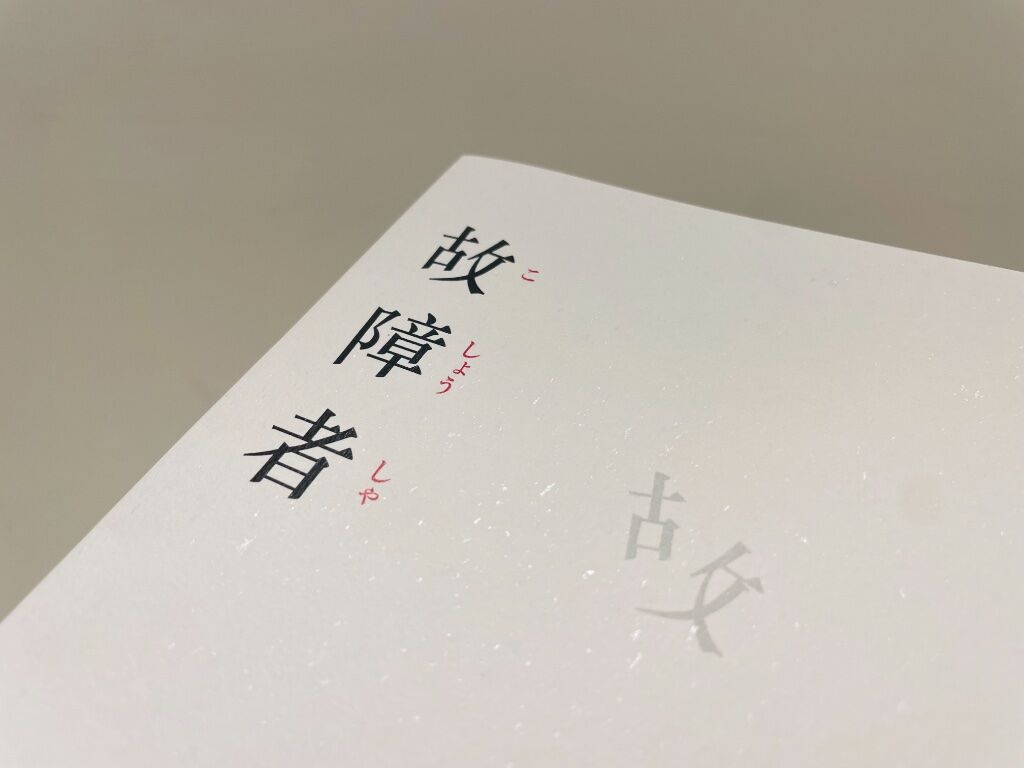 故障者
こ
しょう
しゃ
故